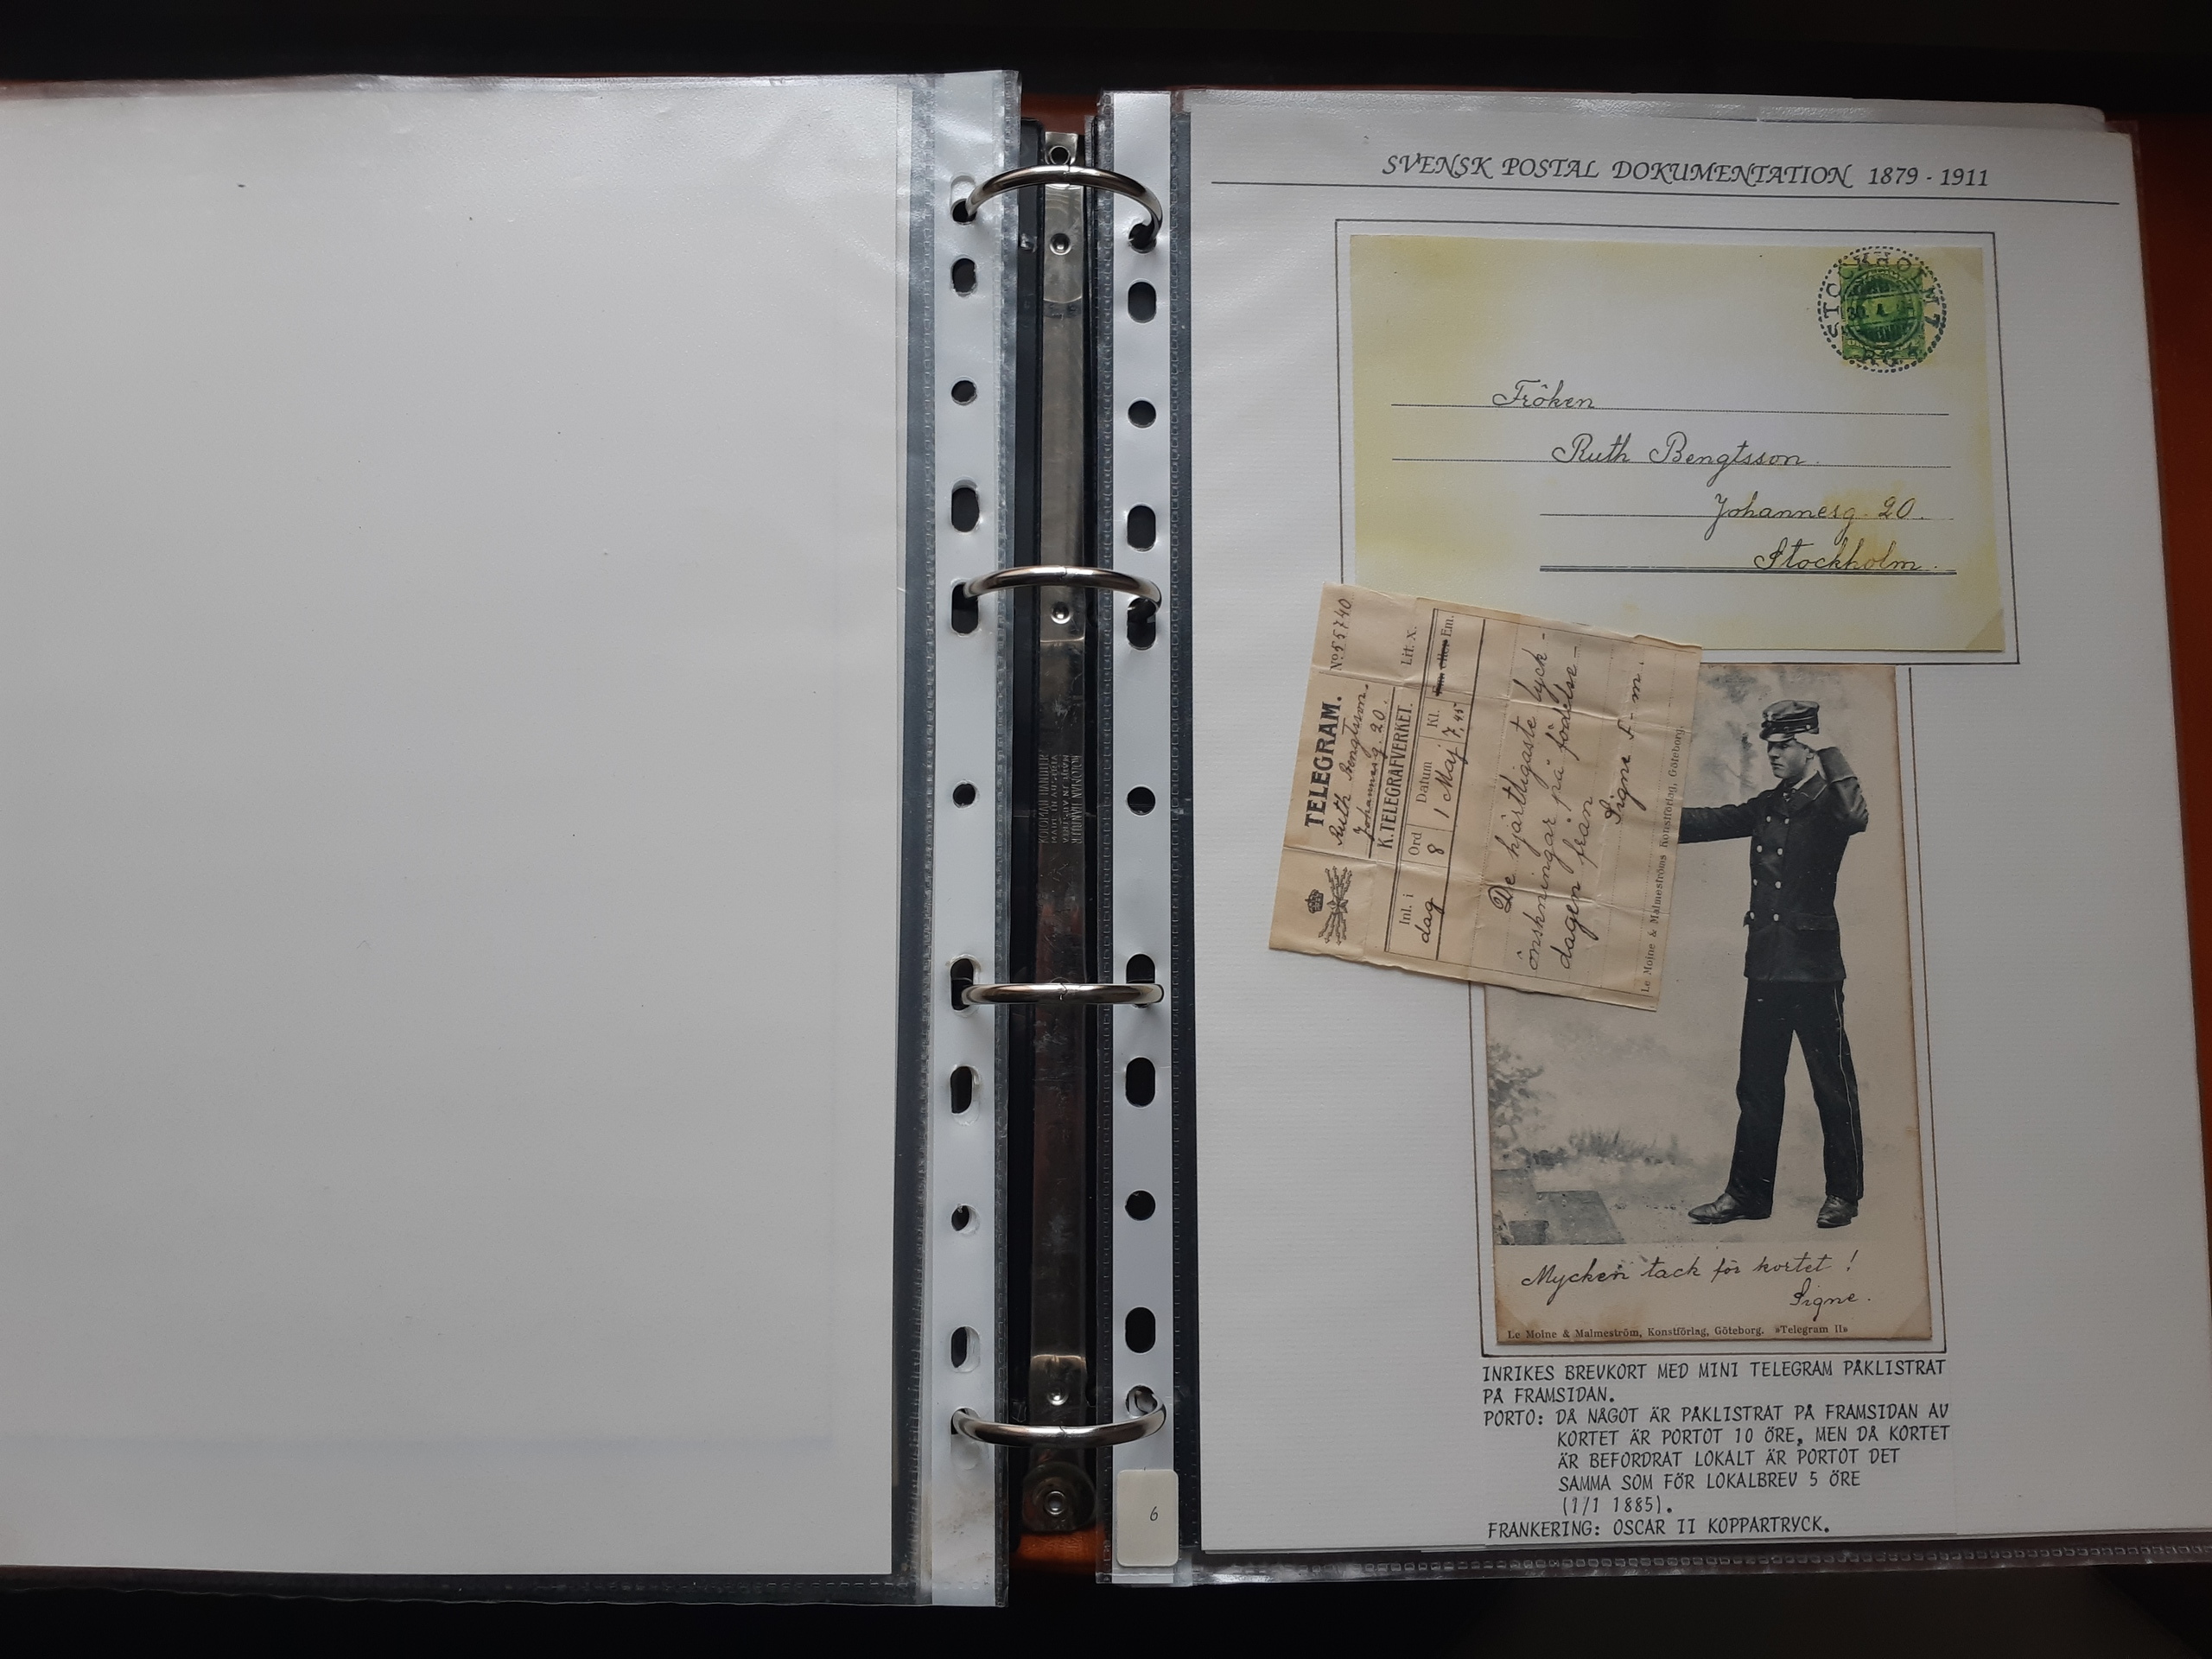 SVENSK POSTAL DOKUMENTATION 1879 - 1911
STOCKHOLM 7
30. 4.
Fröken
Ruth Bengtsson.
Johannesg. 20.
Stockholm.
TELEGRAM.
No 55740
Ruth Bengtsson.
Johannesg. 20.
K. TELEGRAFVERKET.
Lit. X.
Inl. i
Ord
Datum
Kl.
Em.
dag
8
1 Maj
7,45
De hjärtligaste lyck-
önskningar på födelse-
dagen från
Signe
Le Moine & Malmeströms Konstförlag, Göteborg.
Mycken tack för kortet!
Signe.
Le Moine & Malmeström, Konstförlag, Göteborg. »Telegram II»
INRIKES BREVKORT MED MINI TELEGRAM PÅKLISTRAT
PÅ FRAMSIDAN.
PORTO: DÅ NÅGOT ÄR PÅKLISTRAT PÅ FRAMSIDAN AV
KORTET ÄR PORTOT 10 ÖRE, MEN DÅ KORTET
ÄR BEFORDRAT LOKALT ÄR PORTOT DET
SAMMA SOM FÖR LOKALBREV 5 ÖRE
(1/1 1885).
FRANKERING: OSCAR II KOPPARTRYCK.
6